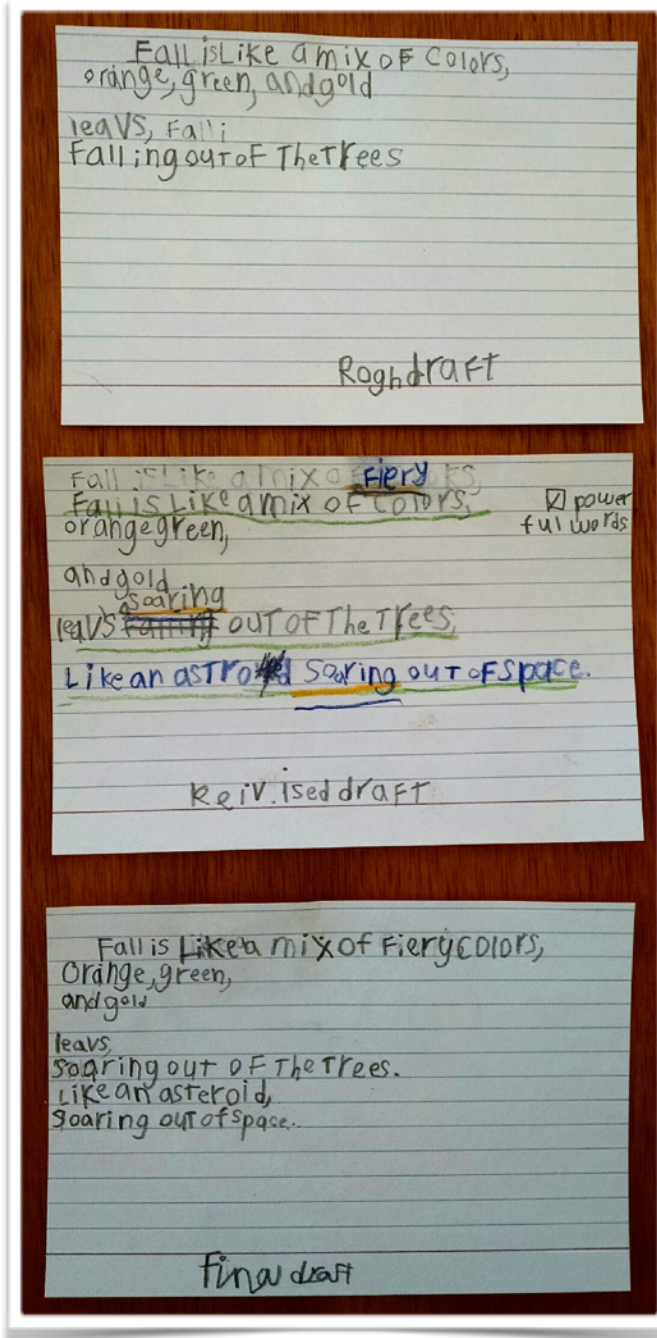 Fall is Like a mix oF Colors,
orange, green, and gold
leaVS, Falli
Falling ouT oF The Trees
Rogh draFT
Fall is Like a mix o
Fiery
Fall is Like a mix oF Colors,
☑ power
ful words
orange green,
and gold
soaring
leaVS Falling ouT OF The Trees,
Like an asTro d Soaring ouT oF Space.
ReiV.ised draFT
Fall is Like a mix of Fiery Colors,
Orange, green,
and gold
leavs,
Soaring out OF The Trees.
Like an asteroid,
Soaring ouT of Space..
final draft